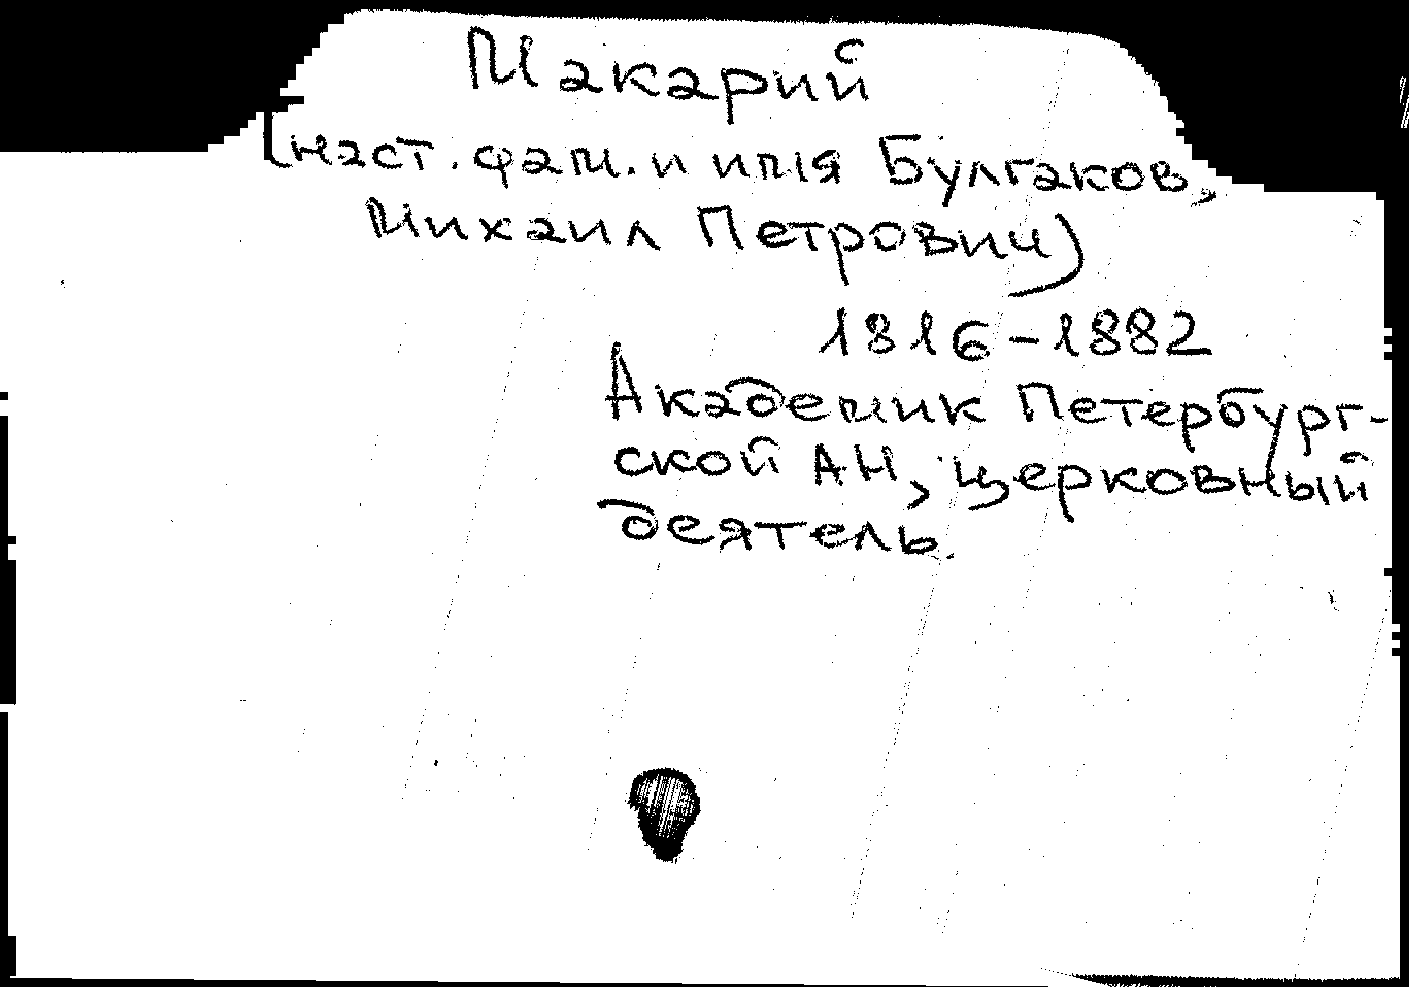 Макарий
(наст. фам. и имя Булгаков,
Михаил Петрович)
1816-1882
Академик Петербург-
ской АН, церковный
деятель.